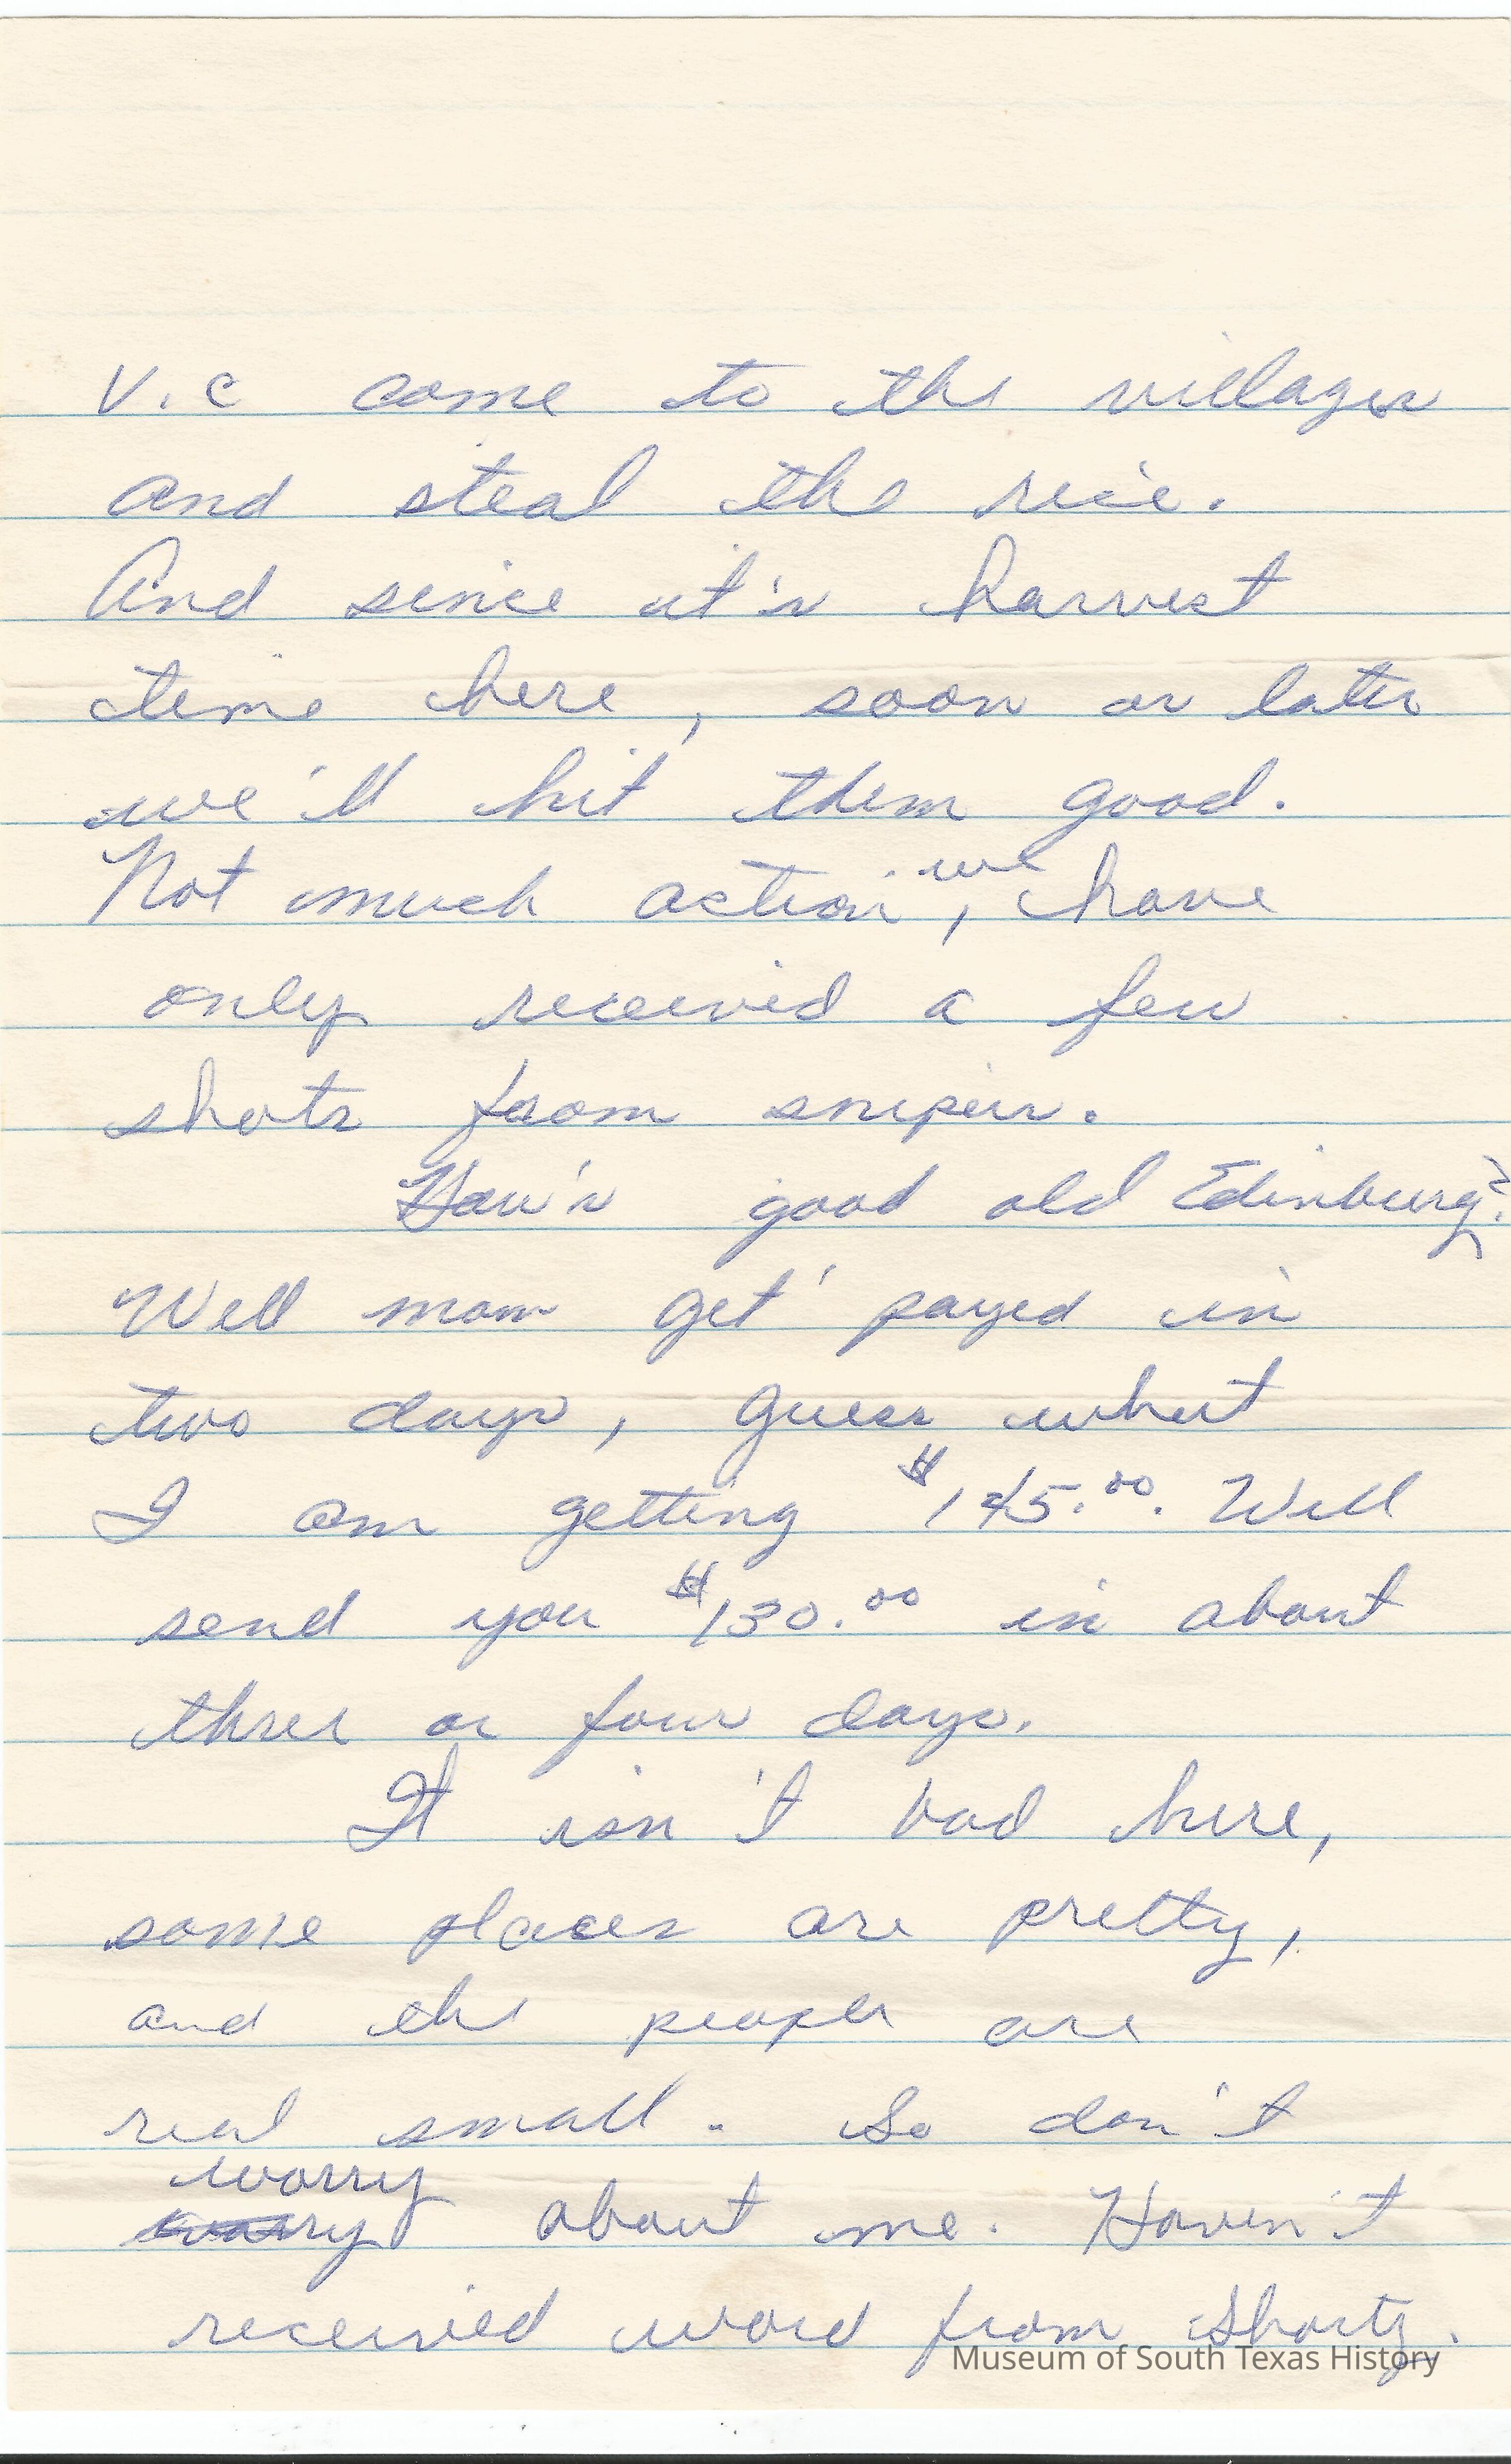 V.C come to the villages
and steal the rice.
And since it's harvest
time here, soon or later
we'll hit them good.
Not much action, we have
only received a few
shots from snipers.
How's good old Edinburg?
Well mom get payed in
two days, guess what
I am getting $145.00. Will
send you $130.00 in about
three or four days.
It isn't bad here,
some places are pretty,
and the people are
real small. So don't
worry about me. Haven't
received word from Shorty.
Museum of South Texas History